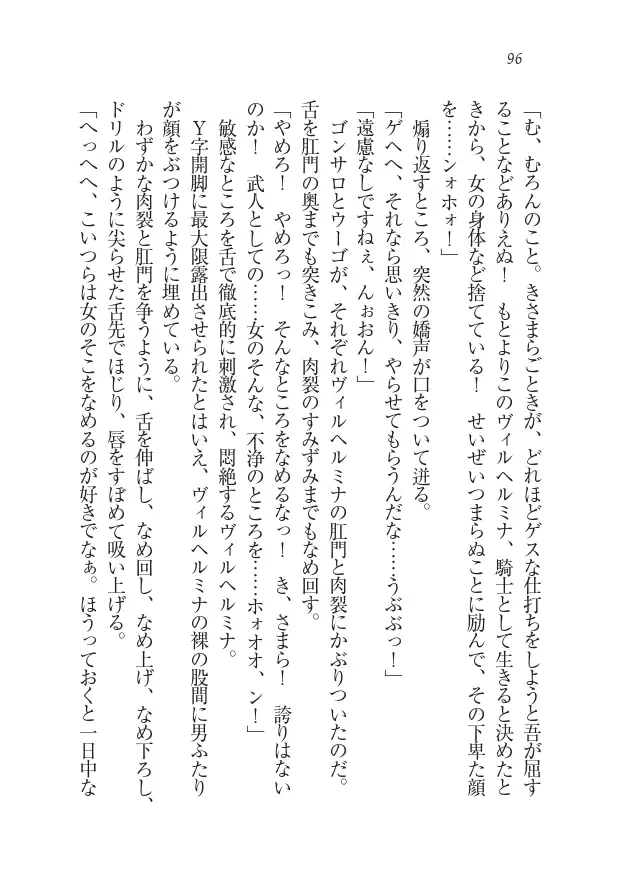 96
「む、むろんのこと。きさまらごときが、どれほどゲスな仕打ちをしようと吾が屈す
ることなどありえぬ！　もとよりこのヴィルヘルミナ、騎士として生きると決めたと
きから、女の身体など捨てている！　せいぜいつまらぬことに励んで、その下卑た顔
を……シォホォ！」
　煽り返すところ、突然の嬌声が口をついて迸る。
「ゲヘヘ、それなら思いきり、やらせてもらうんだな……うぶぶっ！」
「遠慮なしですねぇ、んぉおん！」
　ゴンサロとウーゴが、それぞれヴィルヘルミナの肛門と肉裂にかぶりついたのだ。
舌を肛門の奥までも突きこみ、肉裂のすみずみまでもなめ回す。
「やめろ！　やめろっ！　そんなところをなめるなっ！　き、さまら！　誇りはない
のか！　武人としての……女のそんな、不浄のところを……ホォオオ、ン！」
　敏感なところを舌で徹底的に刺激され、悶絶するヴィルヘルミナ。
　Ｙ字開脚に最大限露出させられたとはいえ、ヴィルヘルミナの裸の股間に男ふたり
が顔をぶつけるように埋めている。
　わずかな肉裂と肛門を争うように、舌を伸ばし、なめ回し、なめ上げ、なめ下ろし、
ドリルのように尖らせた舌先でほじり、唇をすぼめて吸い上げる。
「へっへへ、こいつらは女のそこをなめるのが好きでなぁ。ほうっておくと一日中な